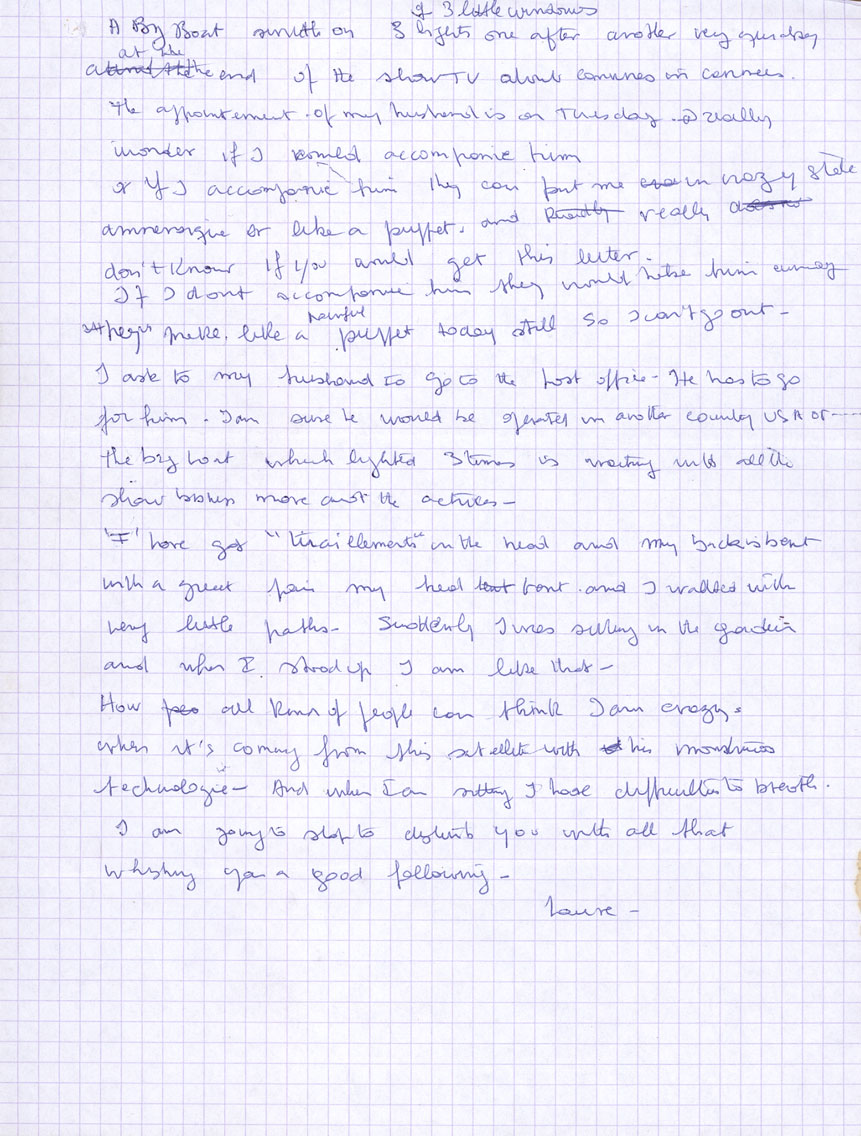 of 3 little windows
A Big Boat switch on 3 lights one after another very quickly
at the
end of the show TV about cannes in cannes.
The appointement of my husband is on Tuesday. I really
wonder if I would accompanie him
or If I accompanie him they can put me in crazy state
or like a puppet, and really
don't know if you would get this letter.
If I dont accompanie him they would take him away
painful
They make, like a puppet today still so I can't go out -
I ask to my husband to go to the post office - He has to go
for him. I am sure he would be operated in another country USA or -----
the big boat which lighted 3 times is waiting until all the
show men and the actrices -
"I" have got "tiraillements" in the head and my back is bent
with a great pain my head bent and I walked with
very little paths - Suddenly I was sitting in the garden
and when I stood up I am like that -
How all kind of people can think I am crazy.
when it's coming from this satellite with his monstruous
technologie - And when I am sitting I have difficulties to breath.
I am going to stop to disturb you with all that
whishing you a good following -
Laure -